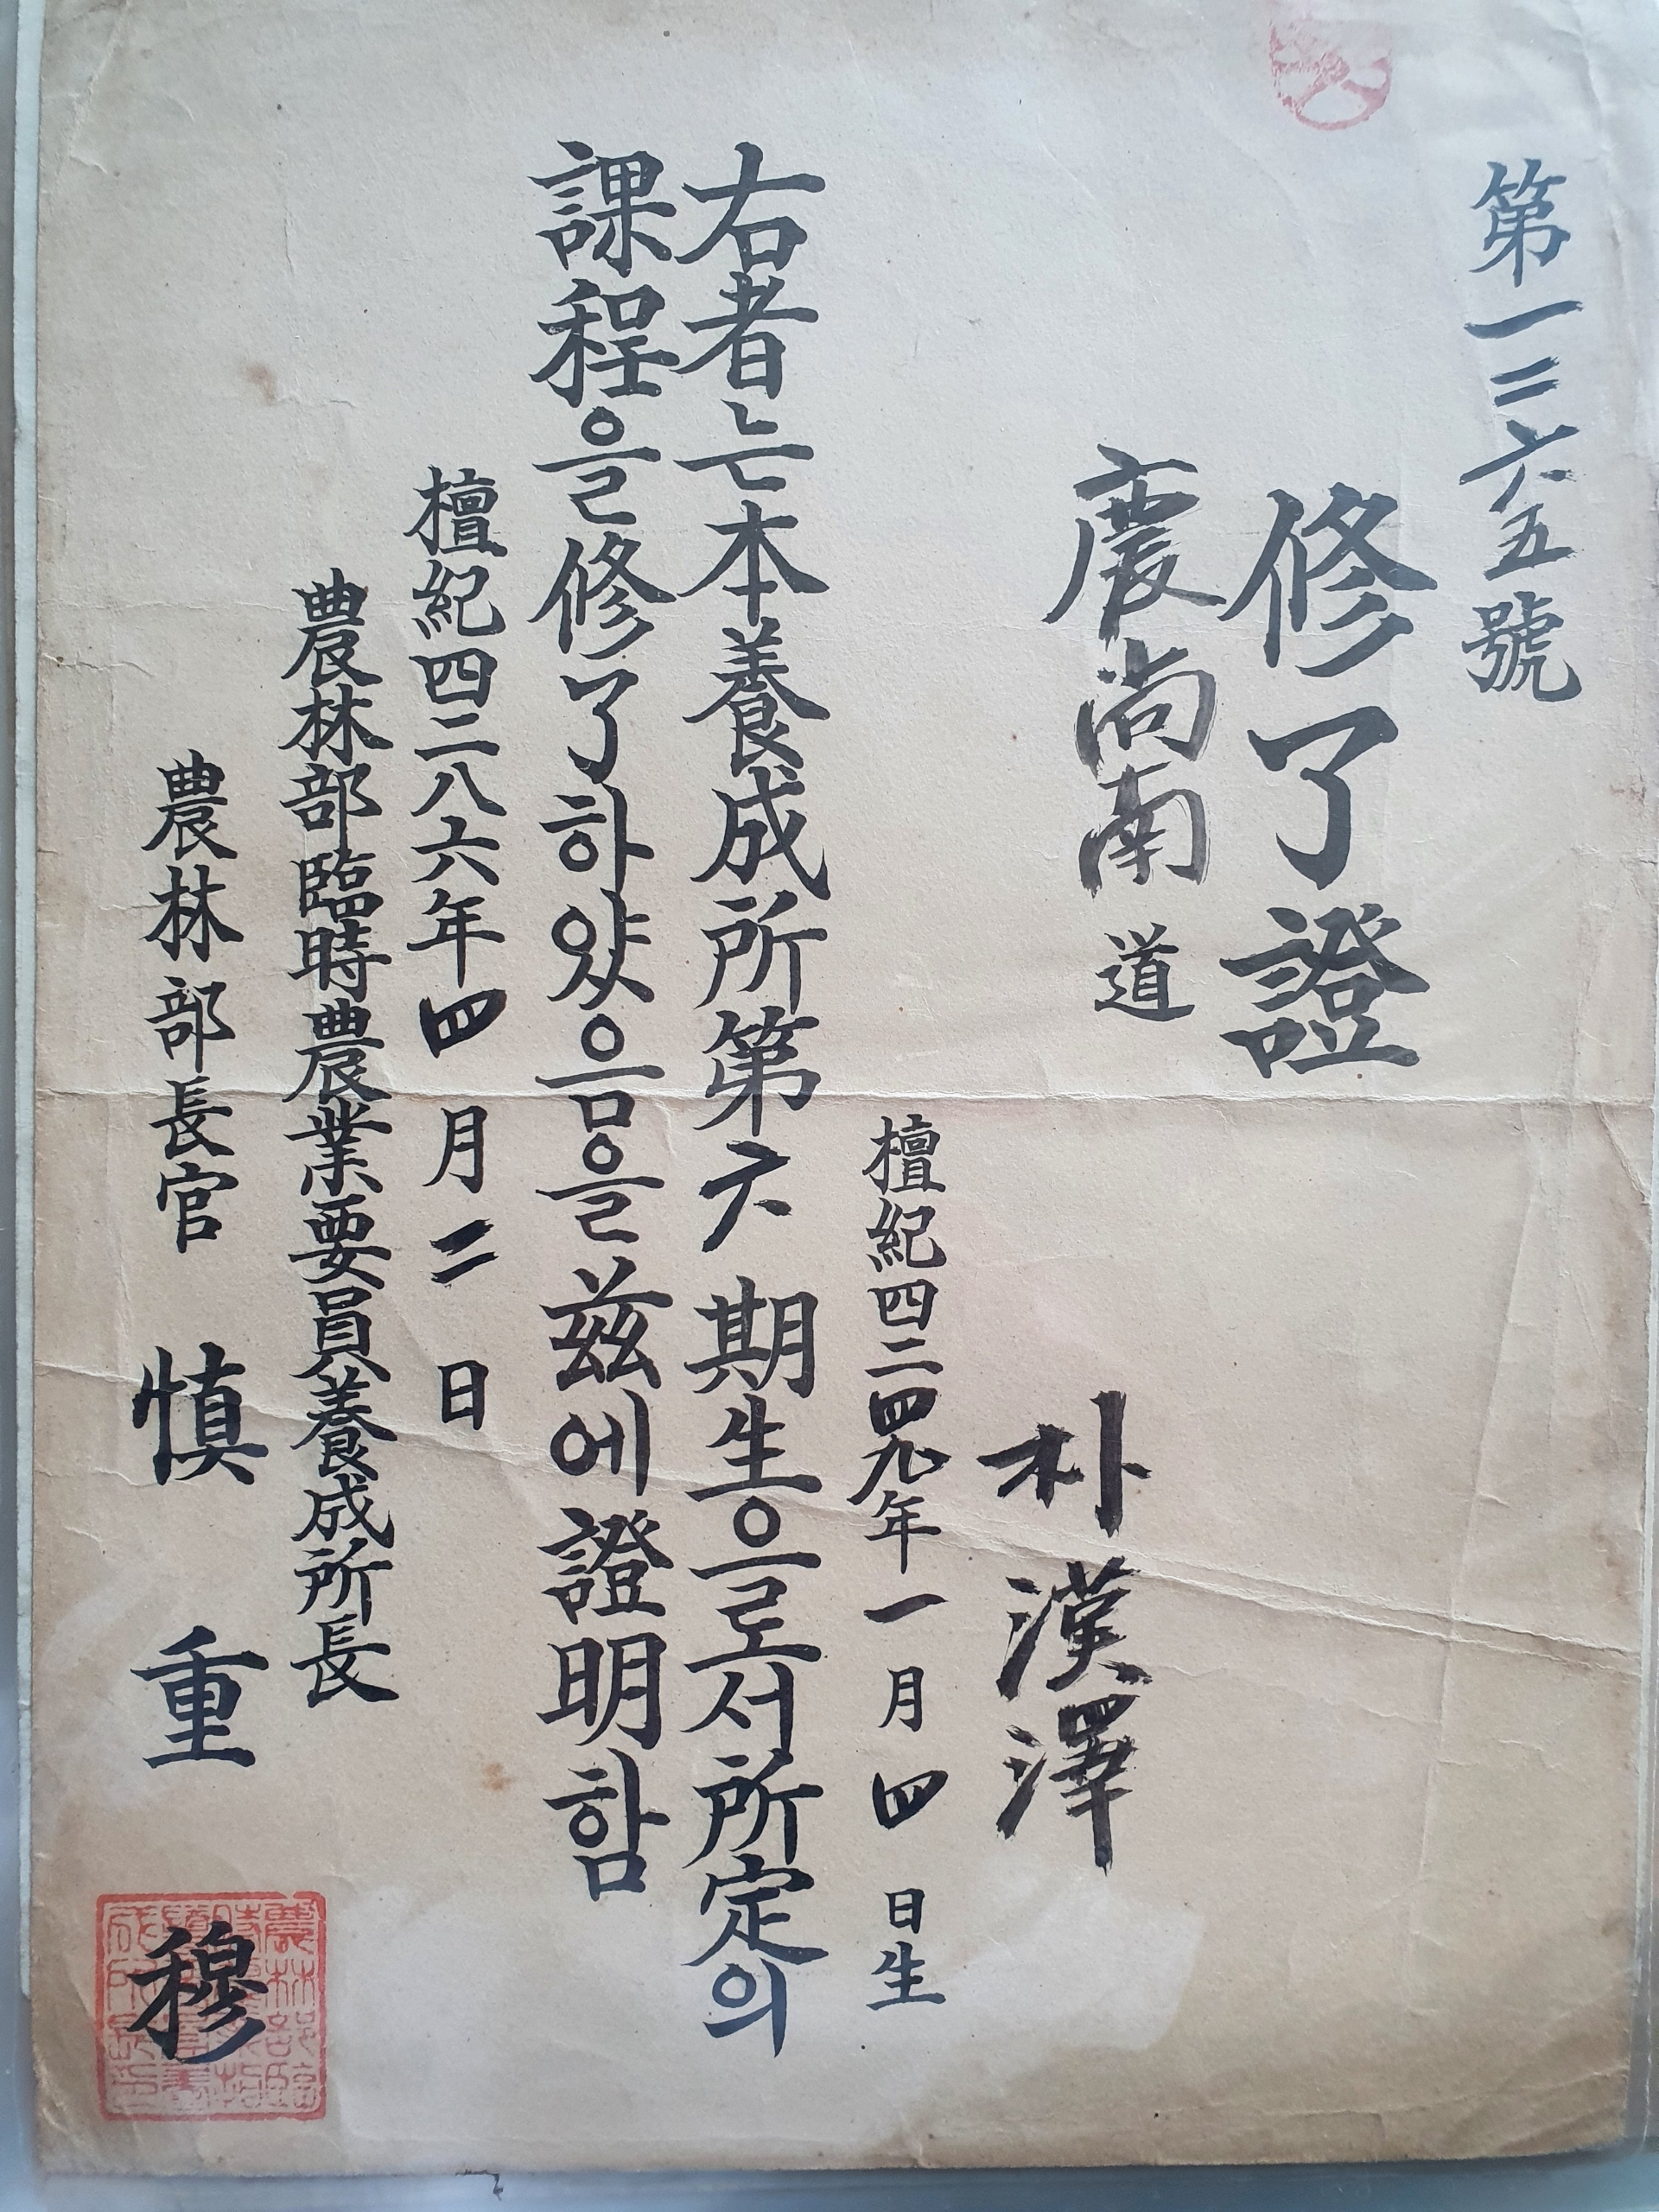 第一二六五號
修了證
慶尚南道
朴漢澤
檀紀四二四九年一月四日生
右者는本養成所第六期生으로서所定의
課程을修了하얏음을玆에證明함
檀紀四二八六年四月二日
農林部臨時農業要員養成所長
農林部長官 愼重穆